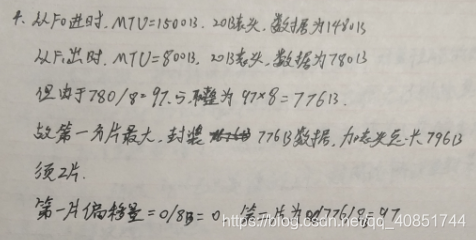 4. 从F0进时, MTU=1500B. 20B表头, 数据为1480B
从F1出时, MTU=800B, 20B表头, 数据为780B
但由于780/8=97.5 取整为 97×8=776B.
故第一分片最大, 封装 776B数据, 加表头总长796B
须2片.
第一片偏移量=0/8B=0, 第二片为 776/8=97
https://blog.csdn.net/qq_40851744